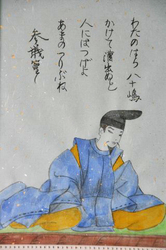 わたのはら 八十嶋
かけて漕出ぬと
人にはつげよ
あまのつりぶね
参議篁